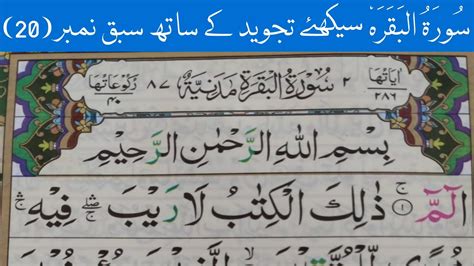 سُورَةُ البَقَرَة سیکھئے تجوید کے ساتھ سبق نمبر (20)
اٰیَاتُهَا ٢٨٦
٢ سُوْرَةُ الْبَقَرَةِ مَدَنِيَّةٌ ٨٧
رُكُوْعَاتُهَا ٤٠
بِسْمِ اللهِ الرَّحْمٰنِ الرَّحِيْمِ
الٓمّٓ ۚ ١ ذٰلِكَ الْكِتٰبُ لَا رَيْبَ ۛۖ فِيْهِ ۛۚ
هُدًى لِّلْمُتَّقِيْنَ